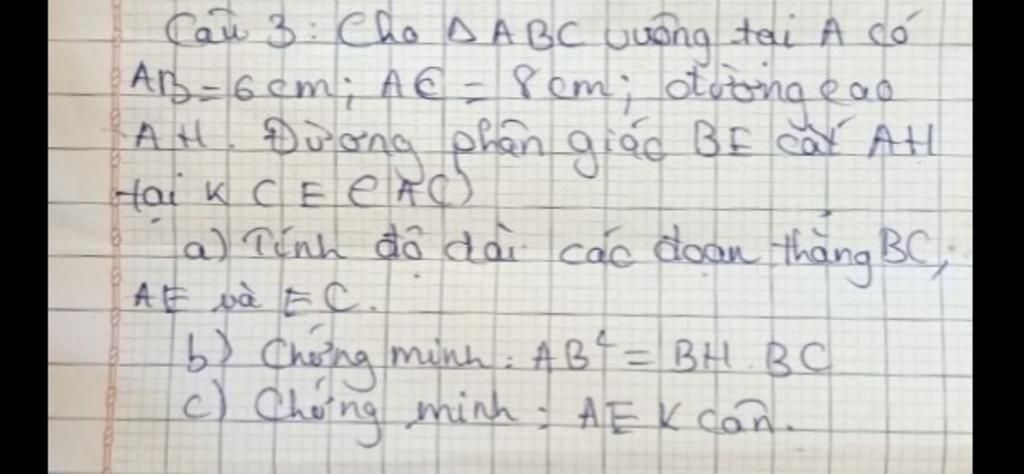 Câu 3: Cho Δ ABC vuông tại A có
AB = 6 cm; AC = 8 cm; đường cao
AH. Đường phân giác BE cắt AH
tại K ( E ∈ AC)
a) Tính độ dài các đoạn thẳng BC,
AE và EC.
b) Chứng minh: AB² = BH . BC
c) Chứng minh: AEK cân.